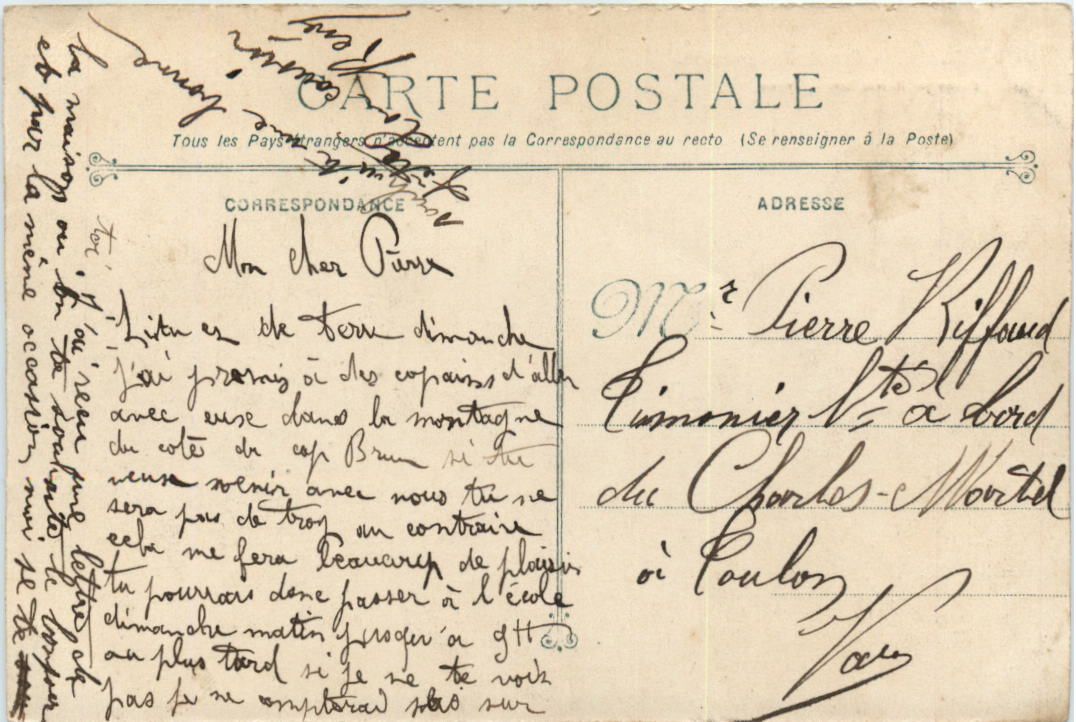 CARTE POSTALE
Tous les Pays étrangers n'acceptent pas la Correspondance au recto (Se renseigner à la Poste)
CORRESPONDANCE
Mon cher Pierre
Si tu es de terre dimanche
j'ai promis à des copains d'aller
avec euse dans la montagne
du coté du cap Brun si tu
veuse venir avec nous tu ne
sera pas de trop au contraire
cela me fera beaucoup de plaisir
tu pourrais donc passer à l'école
dimanche matin jusqu'a 9H
au plus tard si je ne te vois
pas je ne compterai pas sur
toi j'ai recu une lettre de
la maison ou on te souhaite le bonjour
et par la même occasion moi je te
souhaite une bonne
fête
Ton cousin
René
ADRESSE
Mr Pierre Riffaud
Timonier Bté à bord
du Charles-Martel
à Toulon
Var